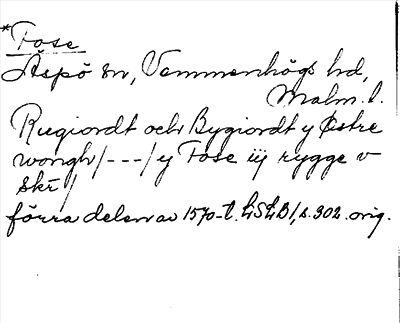 *Fose
Äspö sn, Vemmenhögs hd,
Malm. l.
Rugiordt och Bygiordt y Østre
wongh/---/y Fose iij rygge v
skr/
förra delen av 1570-t. LSLB1, s. 302. orig.